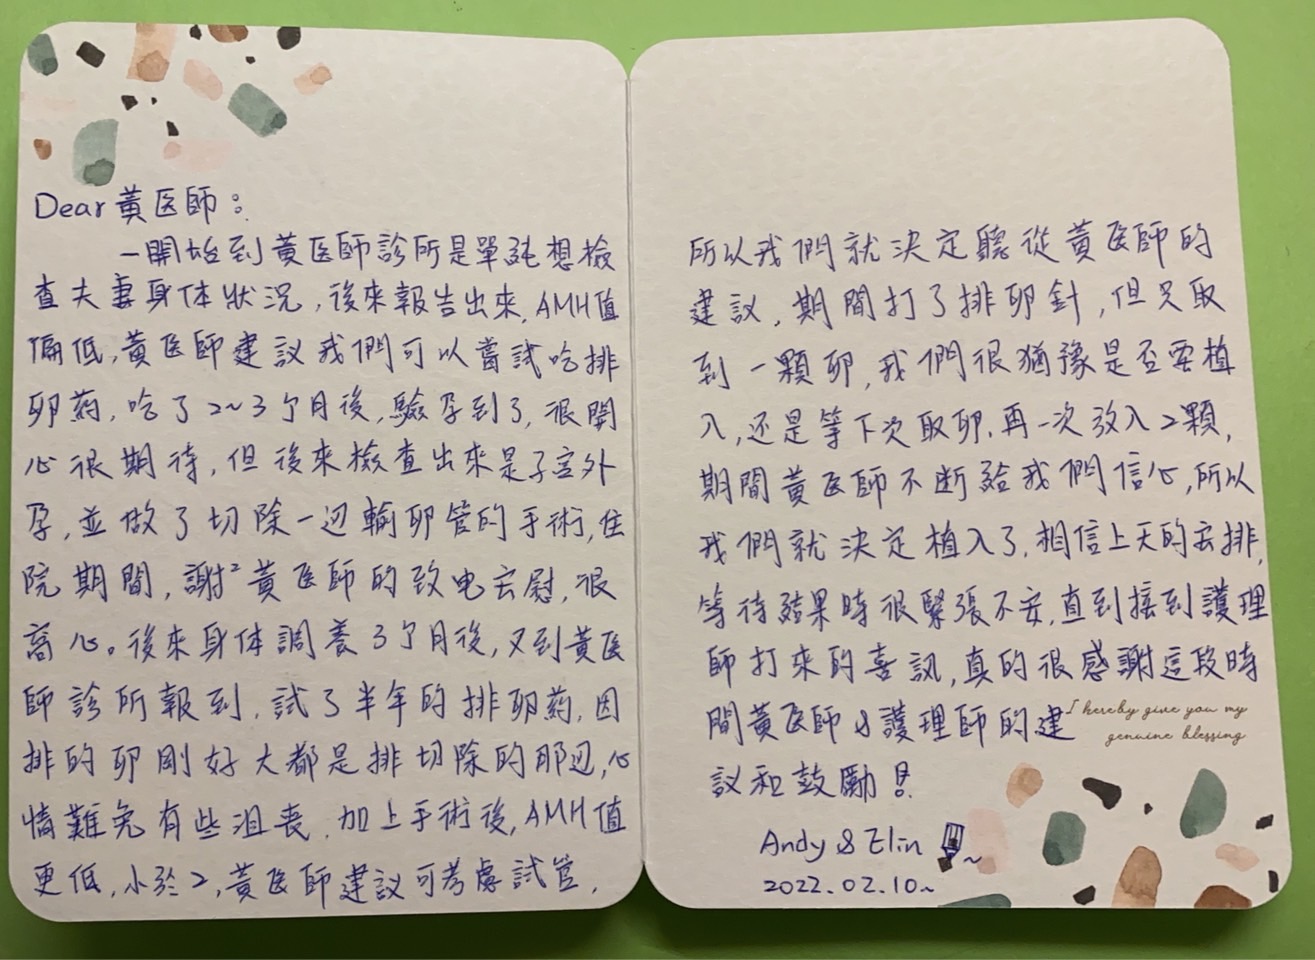 Dear 黃医師：
一開始到黃医師診所是單純想檢
查夫妻身体狀況，後來報告出來，AMH值
偏低，黃医師建議我們可以嘗試吃排
卵药，吃了2~3个月後，驗孕到了，很開
心很期待，但後來檢查出來是子宮外
孕，並做了切除一边輸卵管的手術，住
院期間，謝²黃医師的致电安慰，很
窩心。後來身体調養3个月後，又到黃医
師診所報到，試了半年的排卵药，因
排的卵剛好大都是排切除的那边，心
情難免有些沮喪，加上手術後，AMH值
更低，小於2，黃医師建議可考慮試管，
所以我們就決定聽從黃医師的
建議，期間打了排卵針，但只取
到一顆卵，我們很猶豫是否要植
入，还是等下次取卵，再一次放入2顆，
期間黃医師不断給我們信心，所以
我們就決定植入了，相信上天的安排，
等待結果時很緊張不安，直到接到護理
師打來的喜訊，真的很感謝這段時
間黃医師&護理師的建
議和鼓勵！
I hereby give you my
genuine blessing
Andy & Elin
2022.02.10~